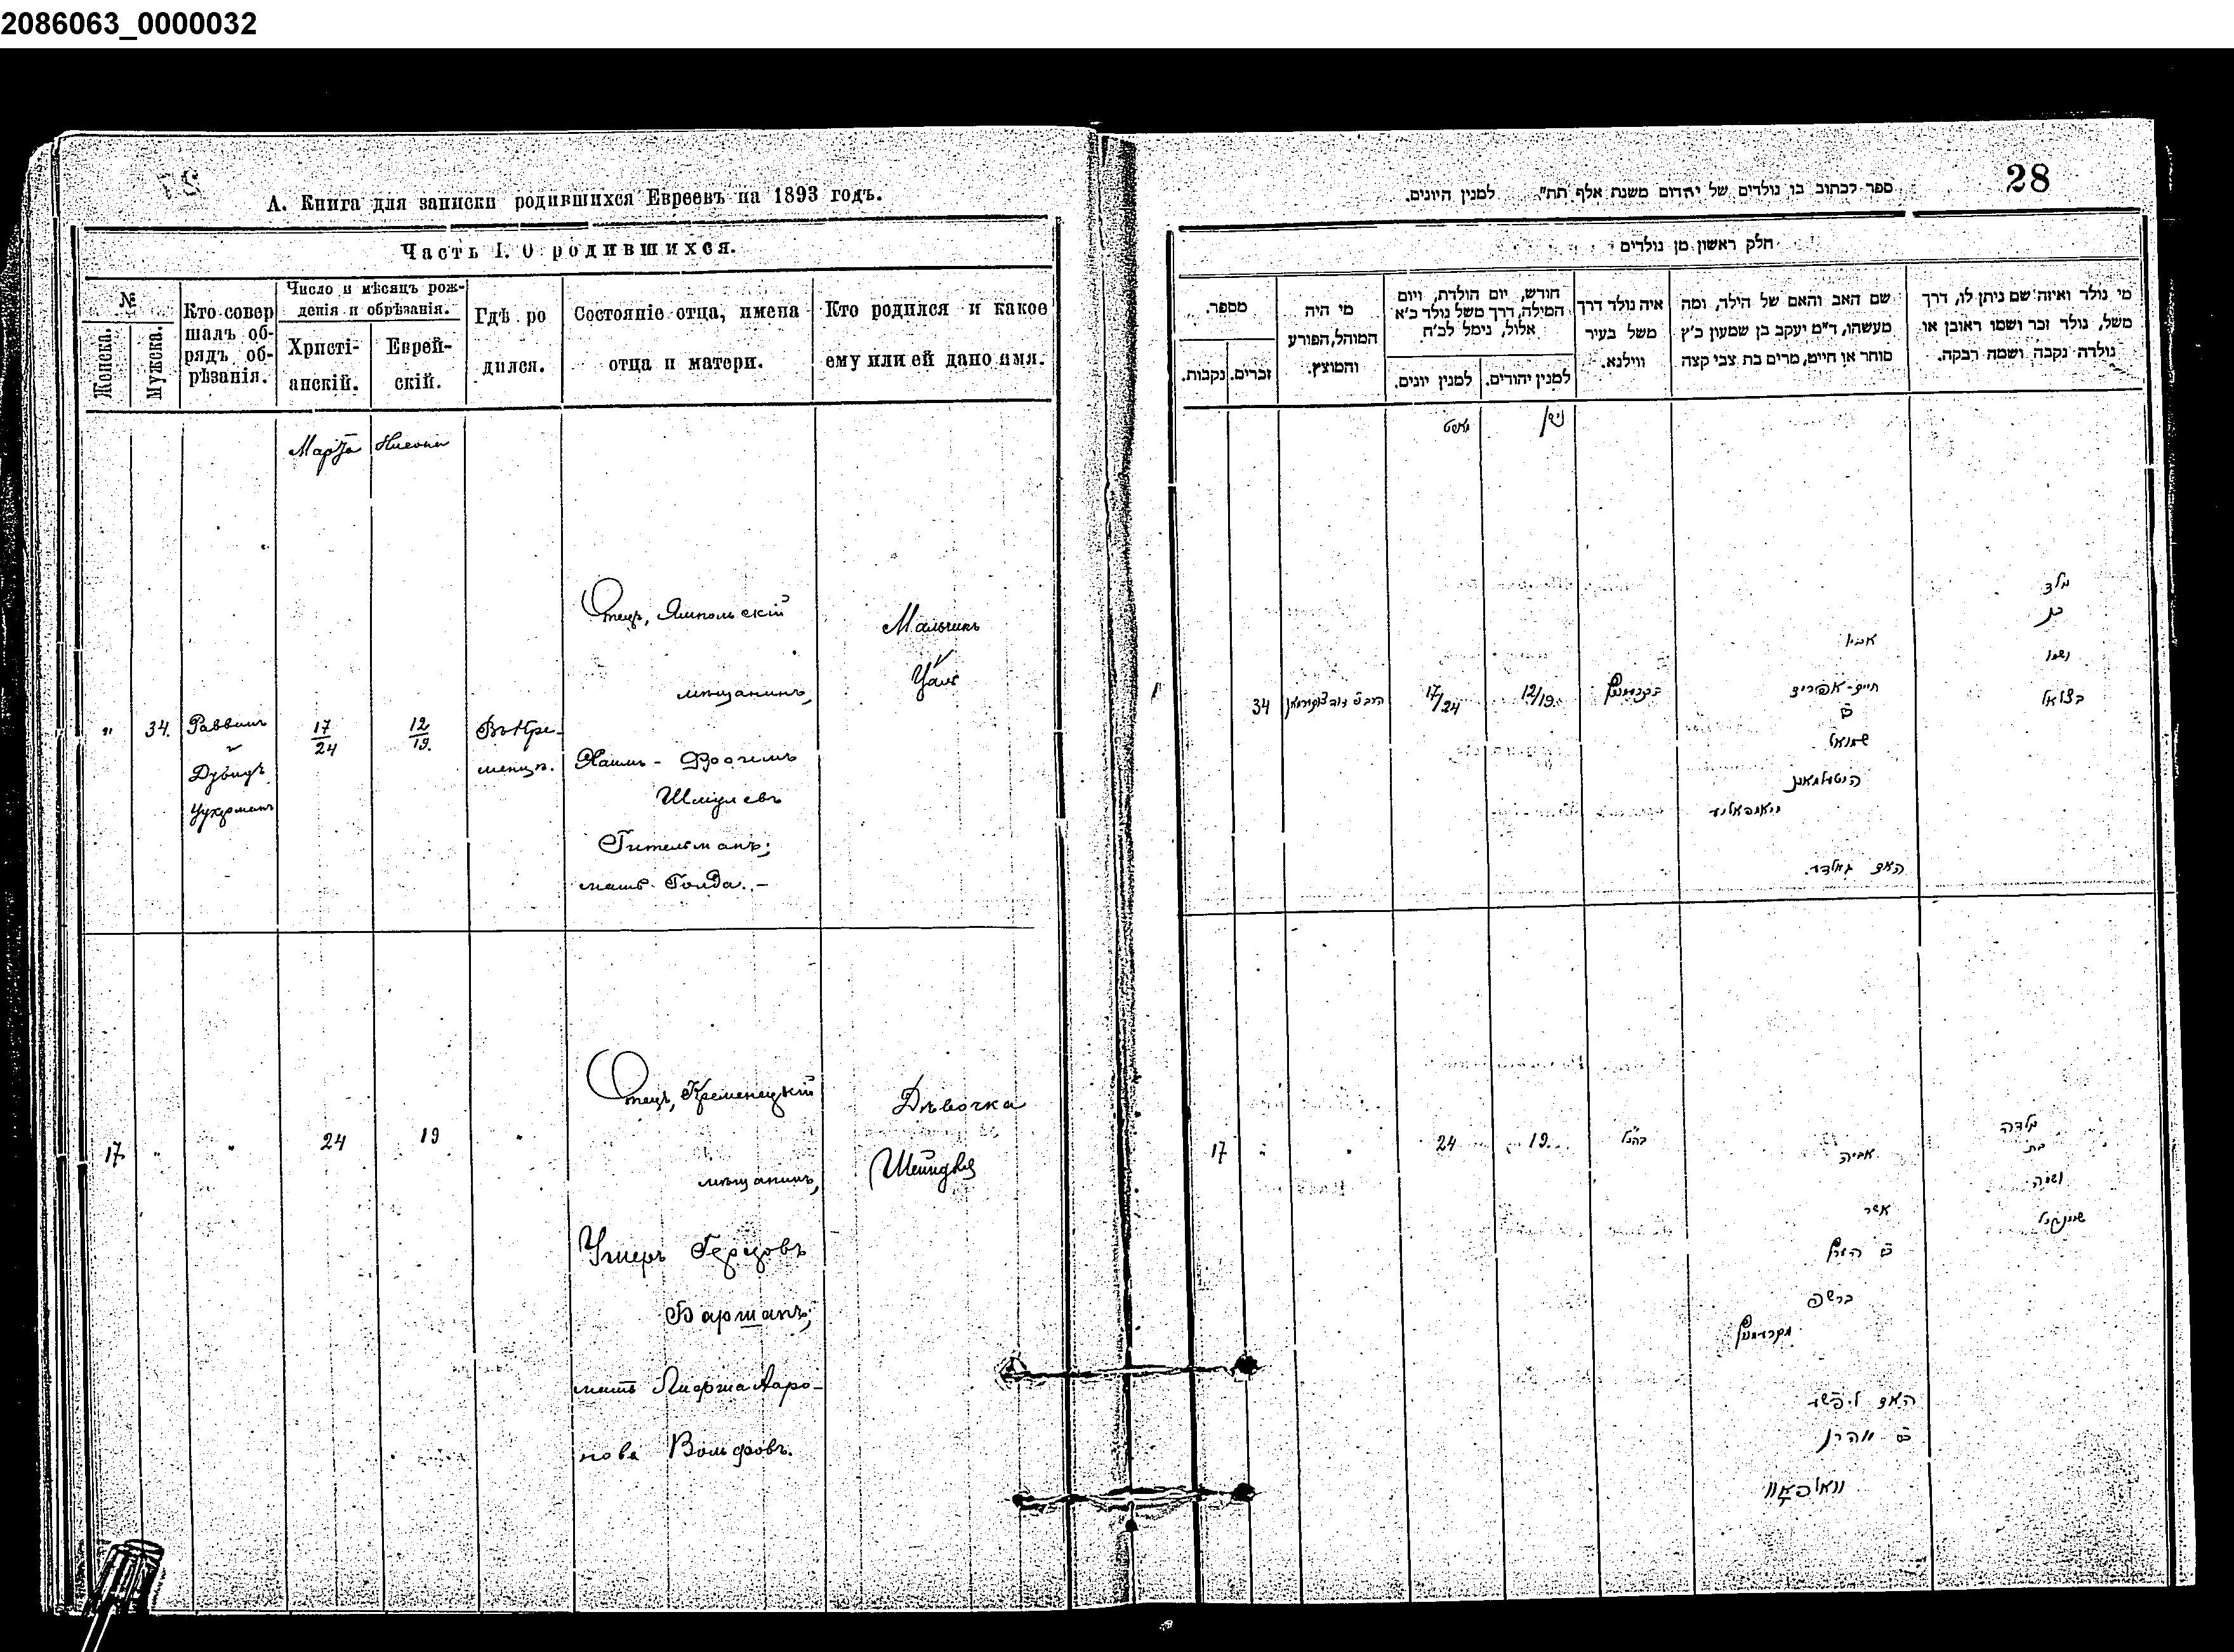 2086063_0000032
А. Книга для записки родившихся Евреевъ на 1893 годъ.
Часть I. О родившихся.
№
Женска.
Мужска.
Кто совер
шалъ об-
рядъ об-
рѣзанія.
Число и мѣсяцъ рож-
денія и обрѣзанія.
Христі-
анскій.
Еврей-
скій.
Гдѣ ро
дился.
Состояніе отца, имена
отца и матери.
Кто родился и какое
ему или ей дано имя.
Марта
Нисона
34.
Раввинъ
Дувидъ
Цукерманъ
17
24
12
19.
Въ Кре-
менцѣ.
Отецъ, Ямпольскій
мѣщанинъ,
Хаимъ-Фроимъ
Шмулевъ
Гительманъ;
мать Голда.-
Мальчикъ
17
24
19
Отецъ, Кременецкій
мѣщанинъ,
Ушеръ Герцовъ
мать Лифша Аро-
нова Вольфовъ.
Дѣвочка
28
ספר לכתוב בו נולדים של יהדום משנת אלף תת" למנין היונים.
חלק ראשון מן נולדים
מספר.
נקבות.
זכרים.
מי היה
המוהל, הפורע
והמוצץ.
חודש, יום הולדת, ויום
המילה, דרך משל נולד כ'א
אלול, נימל לכ'ח
למנין יונים.
למנין יהודים.
איה נולד דרך
משל בעיר
ווילנא.
שם האב והאם של הילד, ומה
מעשהו, ד"מ יעקב בן שמעון כ'ץ
סוחר או חייט, מרים בת צבי קצה
מי נולד ואיזה שם ניתן לו, דרך
משל, נולד זכר ושמו ראובן או
נולדה נקבה ושמה רבקה.
ניסן
34
17/24
12/19.
אביו
שמואל
האם גאלדע.
נולד
בן
ושמו
בצלאל
17
24
19.
כהנ"ל
אביה
אשר
האם ליפשע
ב אהרן
וואלפאוו
נולדה
בת
ושמה